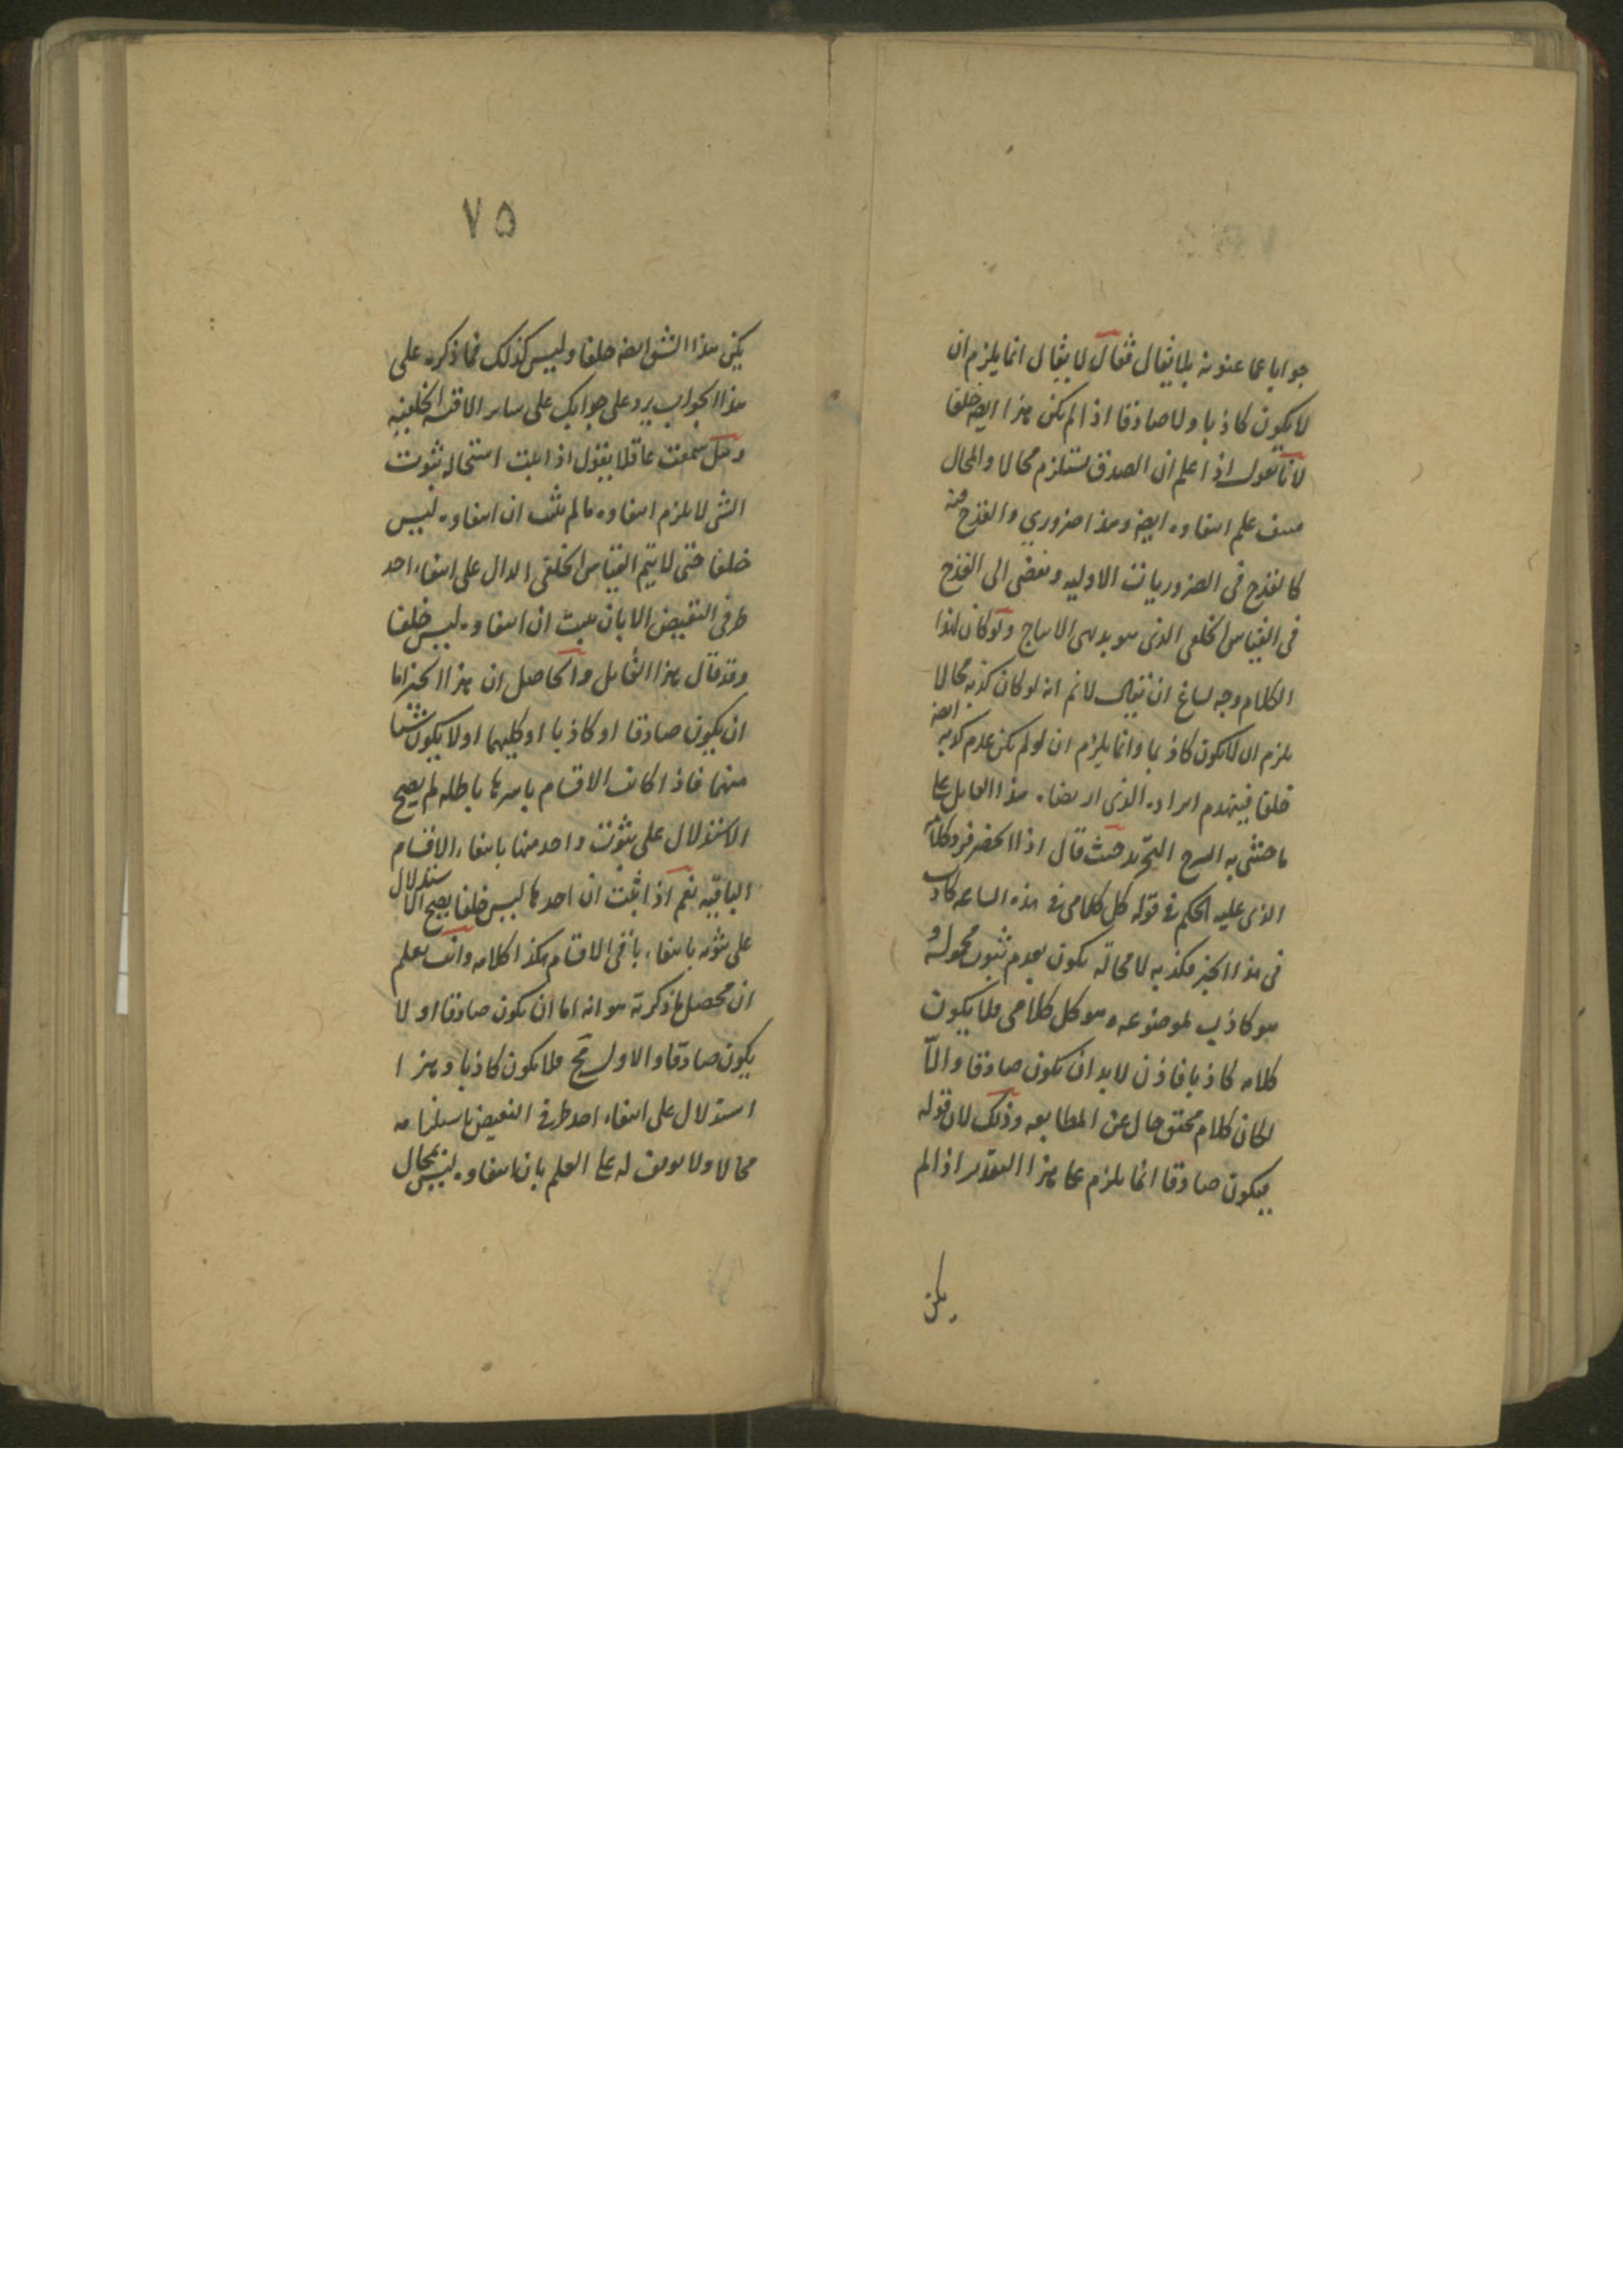 جوابا عما عنونه بلا يقال فقال لا يقال انما يلزم ان
لا يكون كاذبا ولا صادقا اذا لم يكن هذا ايضا خلفا
لانا نقول اذا علم ان الصدق يستلزم محالا والمحال
منتف علم انتفاوه ايضا وهذا ضروري والقدح فيه
كالقدح في الضروريات الاوليه ويفضى الى القدح
في القياس الخلفى الذى هو بديهى الانتاج ولو كان لهذا
الكلام وجه لساغ ان يقال لانم انه لو كان كذبه محالا
يلزم ان لا يكون كاذبا وانما يلزم ان لو لم يكن عدم كذبه ايضا
خلفا فينهدم ايراده الذى ارتضاه هذا القايل على
ما حشى به الشرح التجريد حيث قال اذا انحصر فرد كلامه
الذى عليه الحكم في قوله كل كلامى في هذه الساعه كاذب
في هذا الخبر فكذبه لا محالة يكون بعدم ثبوت محموله و
هو كاذب لموضوعه وهو كل كلامى فلا يكون
كلامه كاذبا فاذن لابد ان يكون صادقا والا
لكان كلام محقق خال عن المطابقه وذلك لان قوله
فيكون صادقا انما يلزم على هذا التقدير اذا لم
يكن
٧٥
يكن هذا الشق ايضا خلفا وليس كذلك فما ذكره على
هذا الجواب يرد على جوابك على ساير الاقيسه الخلفيه
وهل سمعت عاقلا يقول اذا ثبت استحاله ثبوت
الشى لا يلزم انتفاوه ما لم يثبت ان انتفاوه ليس
خلفا حتى لا يتم القياس الخلفى الدال على انتفاء احد
طرفى النقيض الا بان يثبت ان انتفاوه ليس خلفا
وقد قال هذا القايل والحاصل ان هذا الخبر اما
ان يكون صادقا او كاذبا او كليهما او لا يكون شيئا
منهما فاذا كانت الاقسام باسرها باطله لم يصح
الاستدلال على ثبوت واحد منها بانتفاء الاقسام
الباقيه نعم اذا ثبت ان احدها ليس خلفا يصح الاستدلال
على ثبوته بانتفاء باقى الاقسام هكذا كلامه وانت تعلم
ان محصل ما ذكرته هو انه اما ان يكون صادقا او لا
يكون صادقا والاول مح فلا يكون كاذبا وهذا
استدلال على انتفاء احد طرفى النقيض باستلزامه
محالا ولا توقف له على العلم بان انتفاوه ليس بمحال